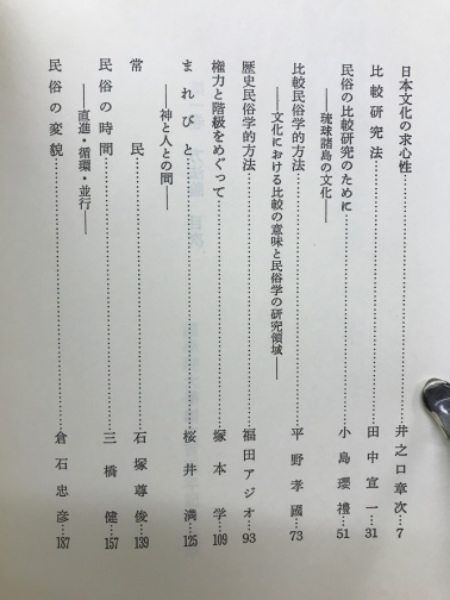 日本文化の求心性……井之口章次…7
比較研究法……田中宣一…31
民俗の比較研究のために……小島瓔禮…51
――琉球諸島の文化――
比較民俗学的方法……平野孝國…73
――文化における比較の意味と民俗学の研究領域――
歴史民俗学的方法……福田アジオ…93
権力と階級をめぐって……塚本学…109
まれびと……桜井満…125
――神と人との間――
常民……石塚尊俊…139
民俗の時間……三橋健…157
――直進・循環・並行――
民俗の変貌……倉石忠彦…187